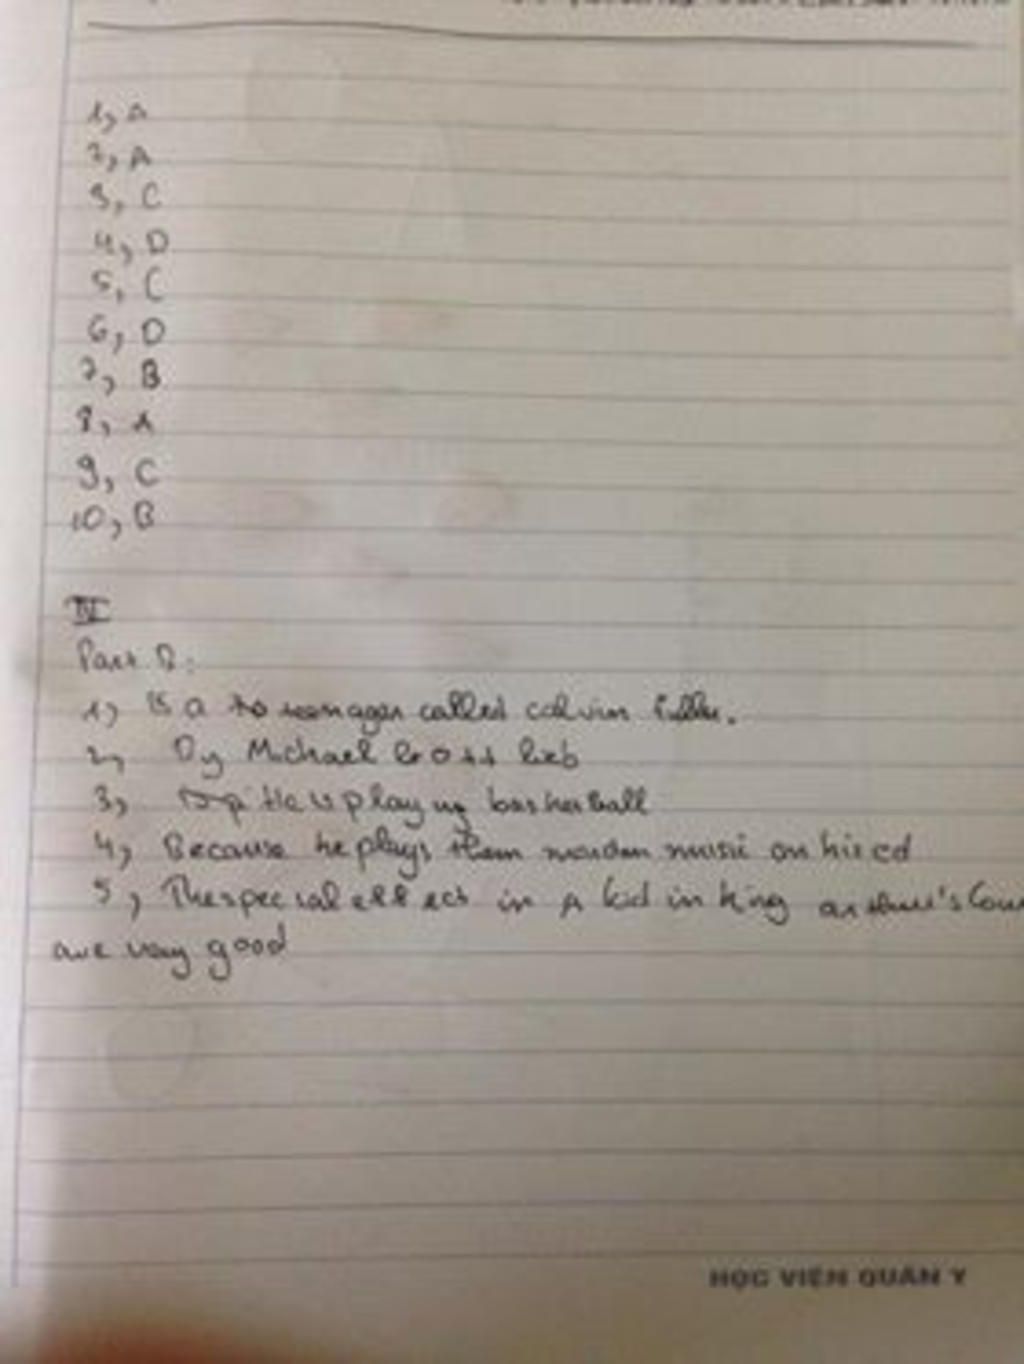 1, A
2, A
3, C
4, D
5, C
6, D
7, B
8, A
9, C
10, B
IV
Part 2:
1) is a to teenager called calvin fuller.
2, By Michael Gottlieb
3, He is playing basketball
4, Because he plays them mordern music on his cd
5, The special effect in A kid in king arthur's Cour
are very good
HỌC VIỆN QUÂN Y